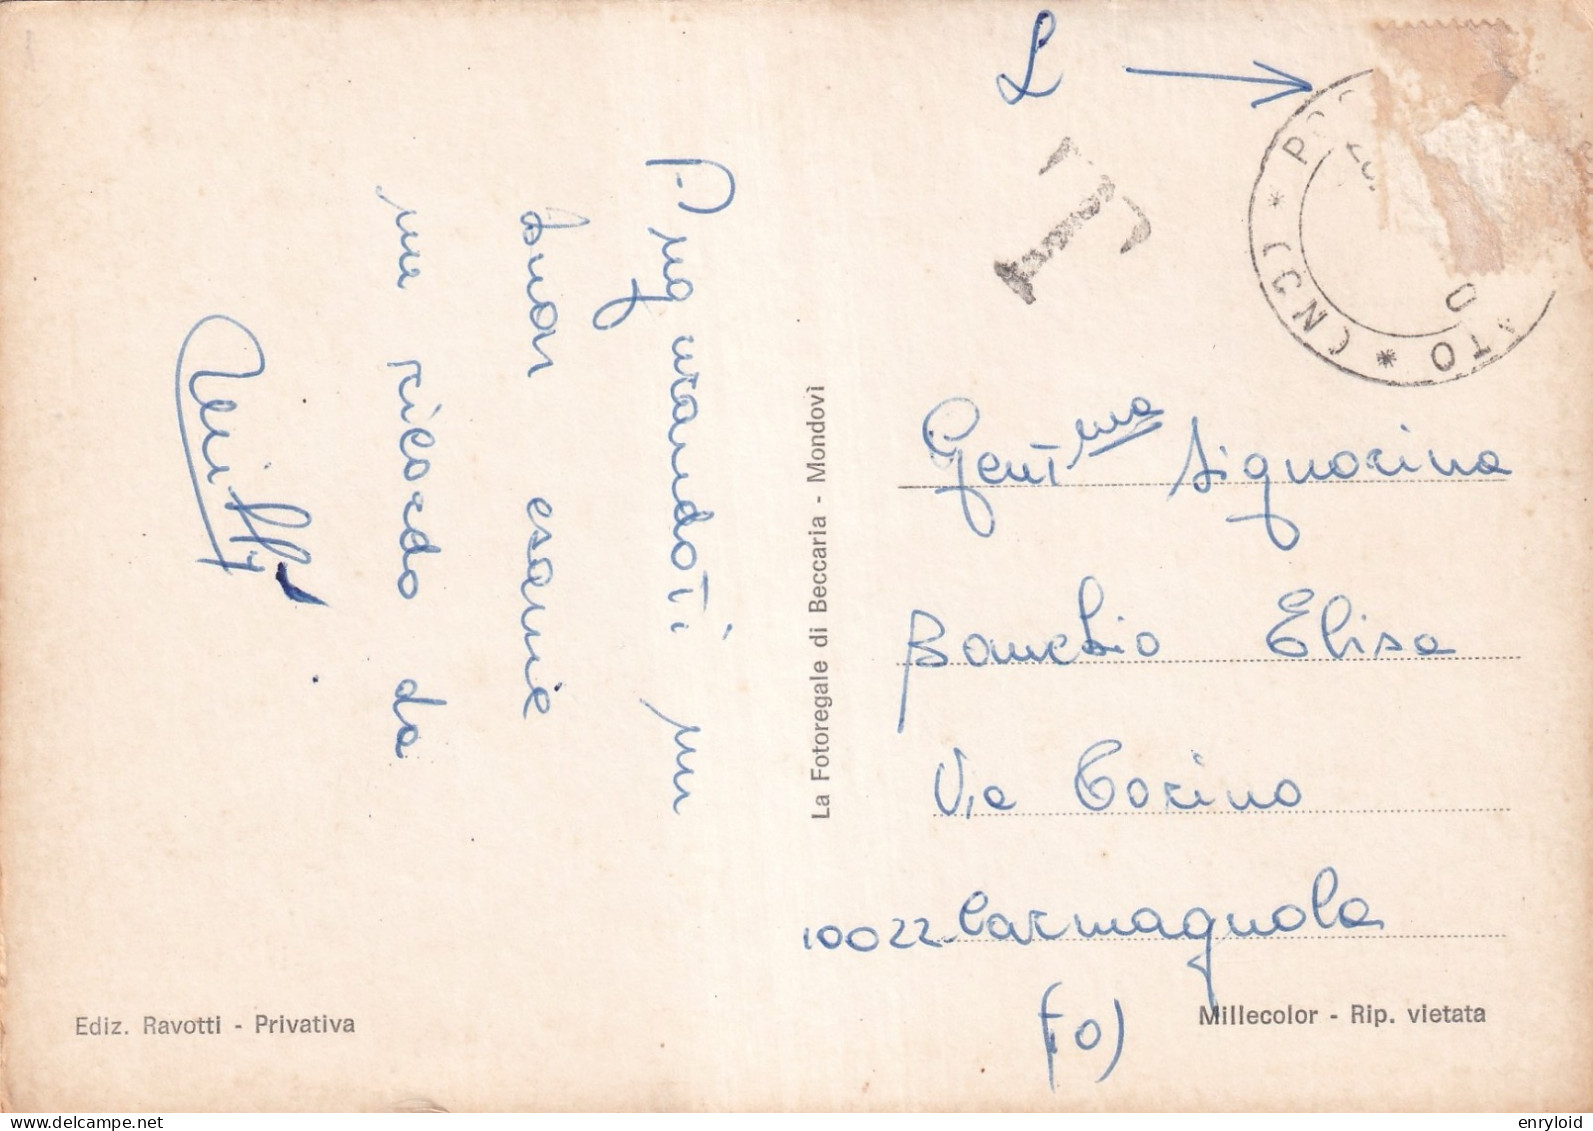 L
T
PO
ATO * (CN) *
Augurandoti un
buon esame
un ricordo da
La Fotoregale di Beccaria - Mondovì
Gent.ma Signorina
Banchio Elisa
Via Torino
10022 Carmagnola
(TO)
Ediz. Ravotti - Privativa
Millecolor - Rip. vietata
enryloid